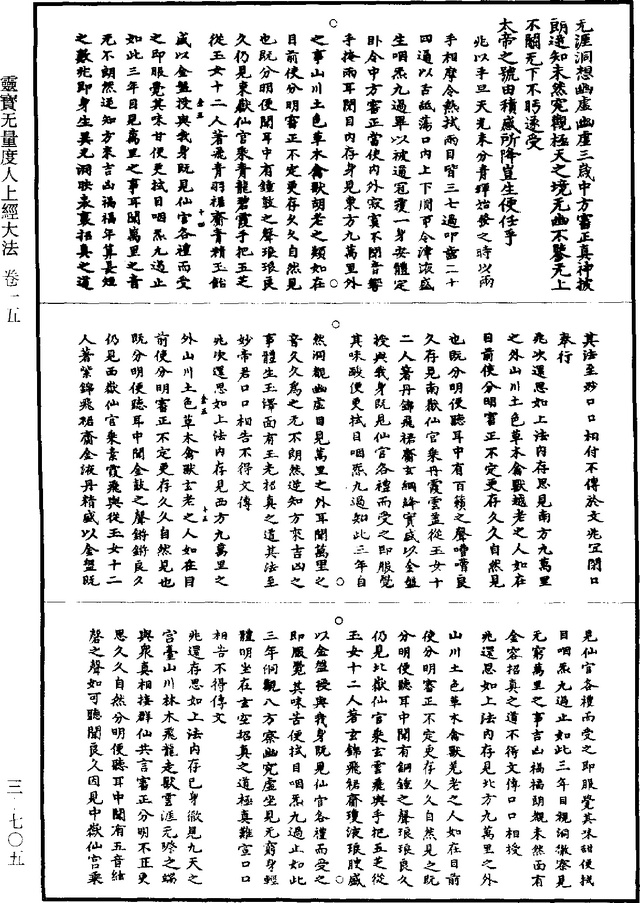 靈寶无量度人上經大法 卷一五
三·七〇五
无涯洞想幽虛幽虛三歲中方審正真神披
朗逆知未然究觀極天之境无幽不鑒无上
不關无下不眄遂受
太帝之號由積感所降豈生便任乎
兆以手旦天光未分青暉始發之時以兩
手相摩令熱拭兩目皆三七過叩齒二十
四過以舌舐蕩口內上下周币令津液盛
生咽炁九過畢以被通冠覆一身安體定
卧令中方審正當使內外寂寞不聞音響
手掩兩耳閉目內存身見東方九萬里外
之事山川土色草木禽獸胡老之類如在
目前使分明審正不定更存久久自然見
也既分明便聞耳中有鐘鼓之聲琅琅良
久仍見東嶽仙官乘青龍碧霞手把五芝
從玉女十二人著飛青羽裙齎青精玉飴
盛以金盤授與我身既見仙官各禮而受
之即服覺其味甘便更拭目咽炁九過止
如此三年目見萬里之事耳聞萬里之音
无不朗然逆知方來吉凶禍福年筭長短
之數兆即身生異光洞映表裏招真之道
其法至妙口口相付不傳於文兆宜閉口
奉行
兆次還思如上法內存思見南方九萬里
之外山川土色草木禽獸越老之人如在
目前使分明審正不定更存久久自然見
也既分明便聽耳中有百籟之聲嘈嘈良
久存見南嶽仙官乘丹霞雲蓋從玉女十
二人著丹錦飛裙齎玄網絳實盛以金盤
授與我身既見仙官各禮而受之即服覺
其味酸便更拭目咽炁九過如此三年自
然洞觀幽虛目見萬里之外耳聞萬里之
音久久為之无不朗然逆知方來吉凶之
事體生玉澤面有玉光招真之道其法至
妙帝君口口相告不得文傳
兆次還思如上法內存思見西方九萬里之
外山川土色草木禽獸玄老之人如在目
前使分明審正不定更存久久自然見也
既分明便聽耳中聞金鼓之聲鏘鏘良久
仍見西嶽仙官乘素霞飛輿從玉女十二
人著紫錦飛裙齎金液丹精盛以金盤既
見仙官各禮而受之即服覺其味甜便拭
目咽炁九過止如此三年目視洞徹察見
无窮萬里之事吉凶禍福朗覩未然面有
金容招真之道不得文傳口口相授
兆還思如上法內存見北方九萬里之外
山川土色草木禽獸羌老之人如在目前
使分明審正不定更存久久自然見之既
分明便聽耳中聞有銅鍾之聲琅琅良久
仍見北嶽仙官乘玄雲飛輿手把五芝從
玉女十二人著玄錦飛裙齎瓊液琅膄盛
以金盤授與我身既見仙官各禮而受之
即服覺其味苦便拭目咽炁九過止如此
三年恫觀八方察幽究虛坐見无窮身輕
體明坐在玄空招真之道極真難宣口口
相告不得傳文
兆還存思如上法內存己身徹見九天之
宮臺山川林木飛龍走獸雲涯无際之端
與衆真相接群仙共言審正分明不正更
思久久自然分明便聽耳中聞有五音絃
磬之聲如可聽聞良久因見中嶽仙官乘